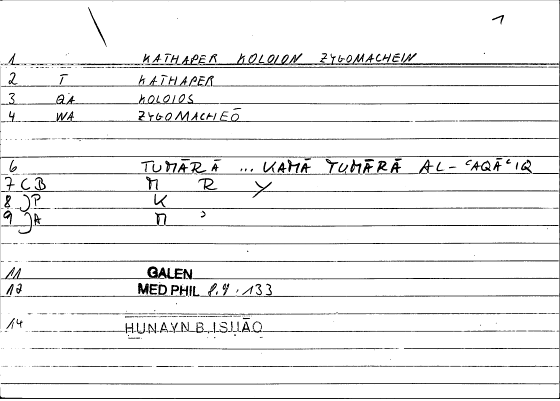 1 KATHAPER KOLOION ZYGOMACHEIN
2 T KATHAPER
3 QA KOLOIOS
4 WA ZYGOMACHEŌ
6 TUMĀRĀ ... KAMĀ TUMĀRĀ AL-ʿAQĀʿIQ
7 CB M R Y
8 JP K
9 JA M ʾ
11 GALEN
12 MED PHIL 8.4 . 133
14 HUNAYN B. ISḤĀQ